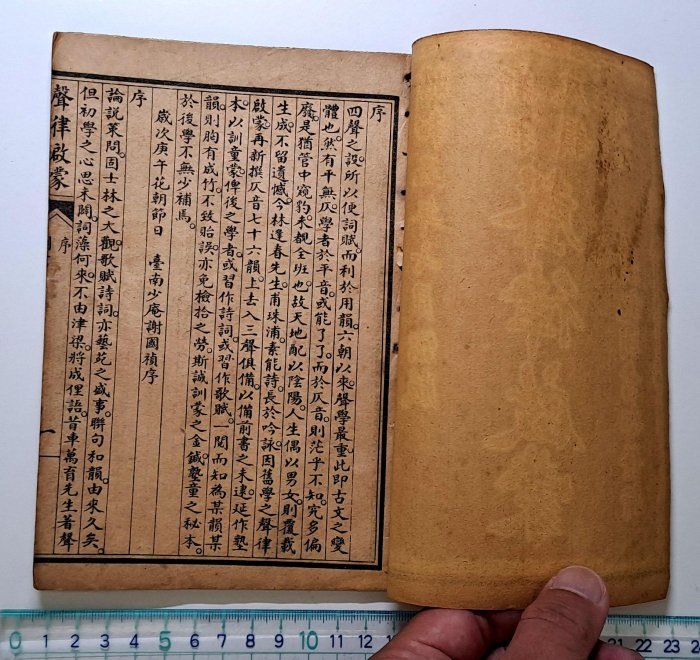 序
四聲之設。所以便詞賦。而利於用韻。六朝以來。聲學最重。此即古文之變
體也。然有平無仄。學者於平音。或能了了。而於仄音。則茫乎不知。究多偏
廢。是猶管中窺豹。未覩全班也。故天地配以陰陽。人生偶以男女。則覆載
生成。不留遺憾。今林逢春先生。甫珠浦。素能詩。長於吟詠。因舊學之聲律
啟蒙。再新撰仄音七十六韻。上去入三聲俱備。以備前書之未逮。延作塾
本。以訓童蒙。俾後之學者。或習作詩詞。或習作歌賦。一閱而知為某韻某
韻。則胸有成竹。不致貽誤。亦免檢拾之勞。斯誠訓蒙之金鍼。塾童之秘本。
於後學不無少補焉。
歲次庚午花朝節日 臺南少庵謝國禎序
序
論說策問。固士林之大觀。歌賦詩詞。亦藝苑之盛事。聯句和韻。由來久矣。
但初學之心思未開。詞藻何來。不由津梁。將成俚語。昔車萬育先生著聲
聲律啟蒙
序
一
0 1 2 3 4 5 6 7 8 9 10 11 12 13 21 22 23